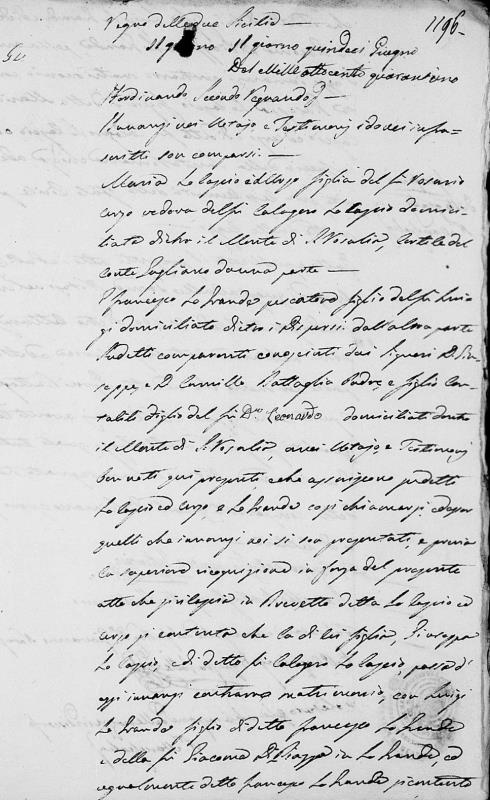 1196
Regno delle due Sicilie
Il giorno Il giorno quindeci Giugno
Del Mille ottocento quarantuno
Ferdinando Secondo Regnando
Innanzi noi Notajo, e Testimonj idonei infra-
scritti son comparsi
Maria Lo Cascio ed figlia del fu Rosario
vedova del fu Calogero Lo Cascio domici-
liata dietro il Monte di S. Rosalia, Cortile del
Conte da una parte
Francesco Lo pescatore figlio del fu Luig-
gi domiciliato dietro i dall'altra parte
Sudetti comparenti conosciuti dai Signori D. Giu-
seppe, e D. Camillo Battaglia Padre, e figlio Con-
tabili figlio del fu D.n Leonardo domiciliati dietro
il Monte di S. Rosalia, a noi Notajo, e Testimonj
ben noti qui presenti, che asseriscono sudetti
Lo Cascio ed e Lo così chiamarsi, ed esser
quelli che innanzi noi si son presentati, e previa
la superiore ricognizione in forza del presente
atto che si rilascia in Brevetto detta Lo Cascio ed
si contenta che la di lei figlia, Giuseppa
Lo Cascio, e di detto fu Calogero Lo Cascio, possa d'
oggi innanzi contrarre matrimonio, con Luigi
Lo figlio di detto Francesco Lo
e della fu Giacoma Di in Lo ed
egualmente detto Francesco Lo si contenta